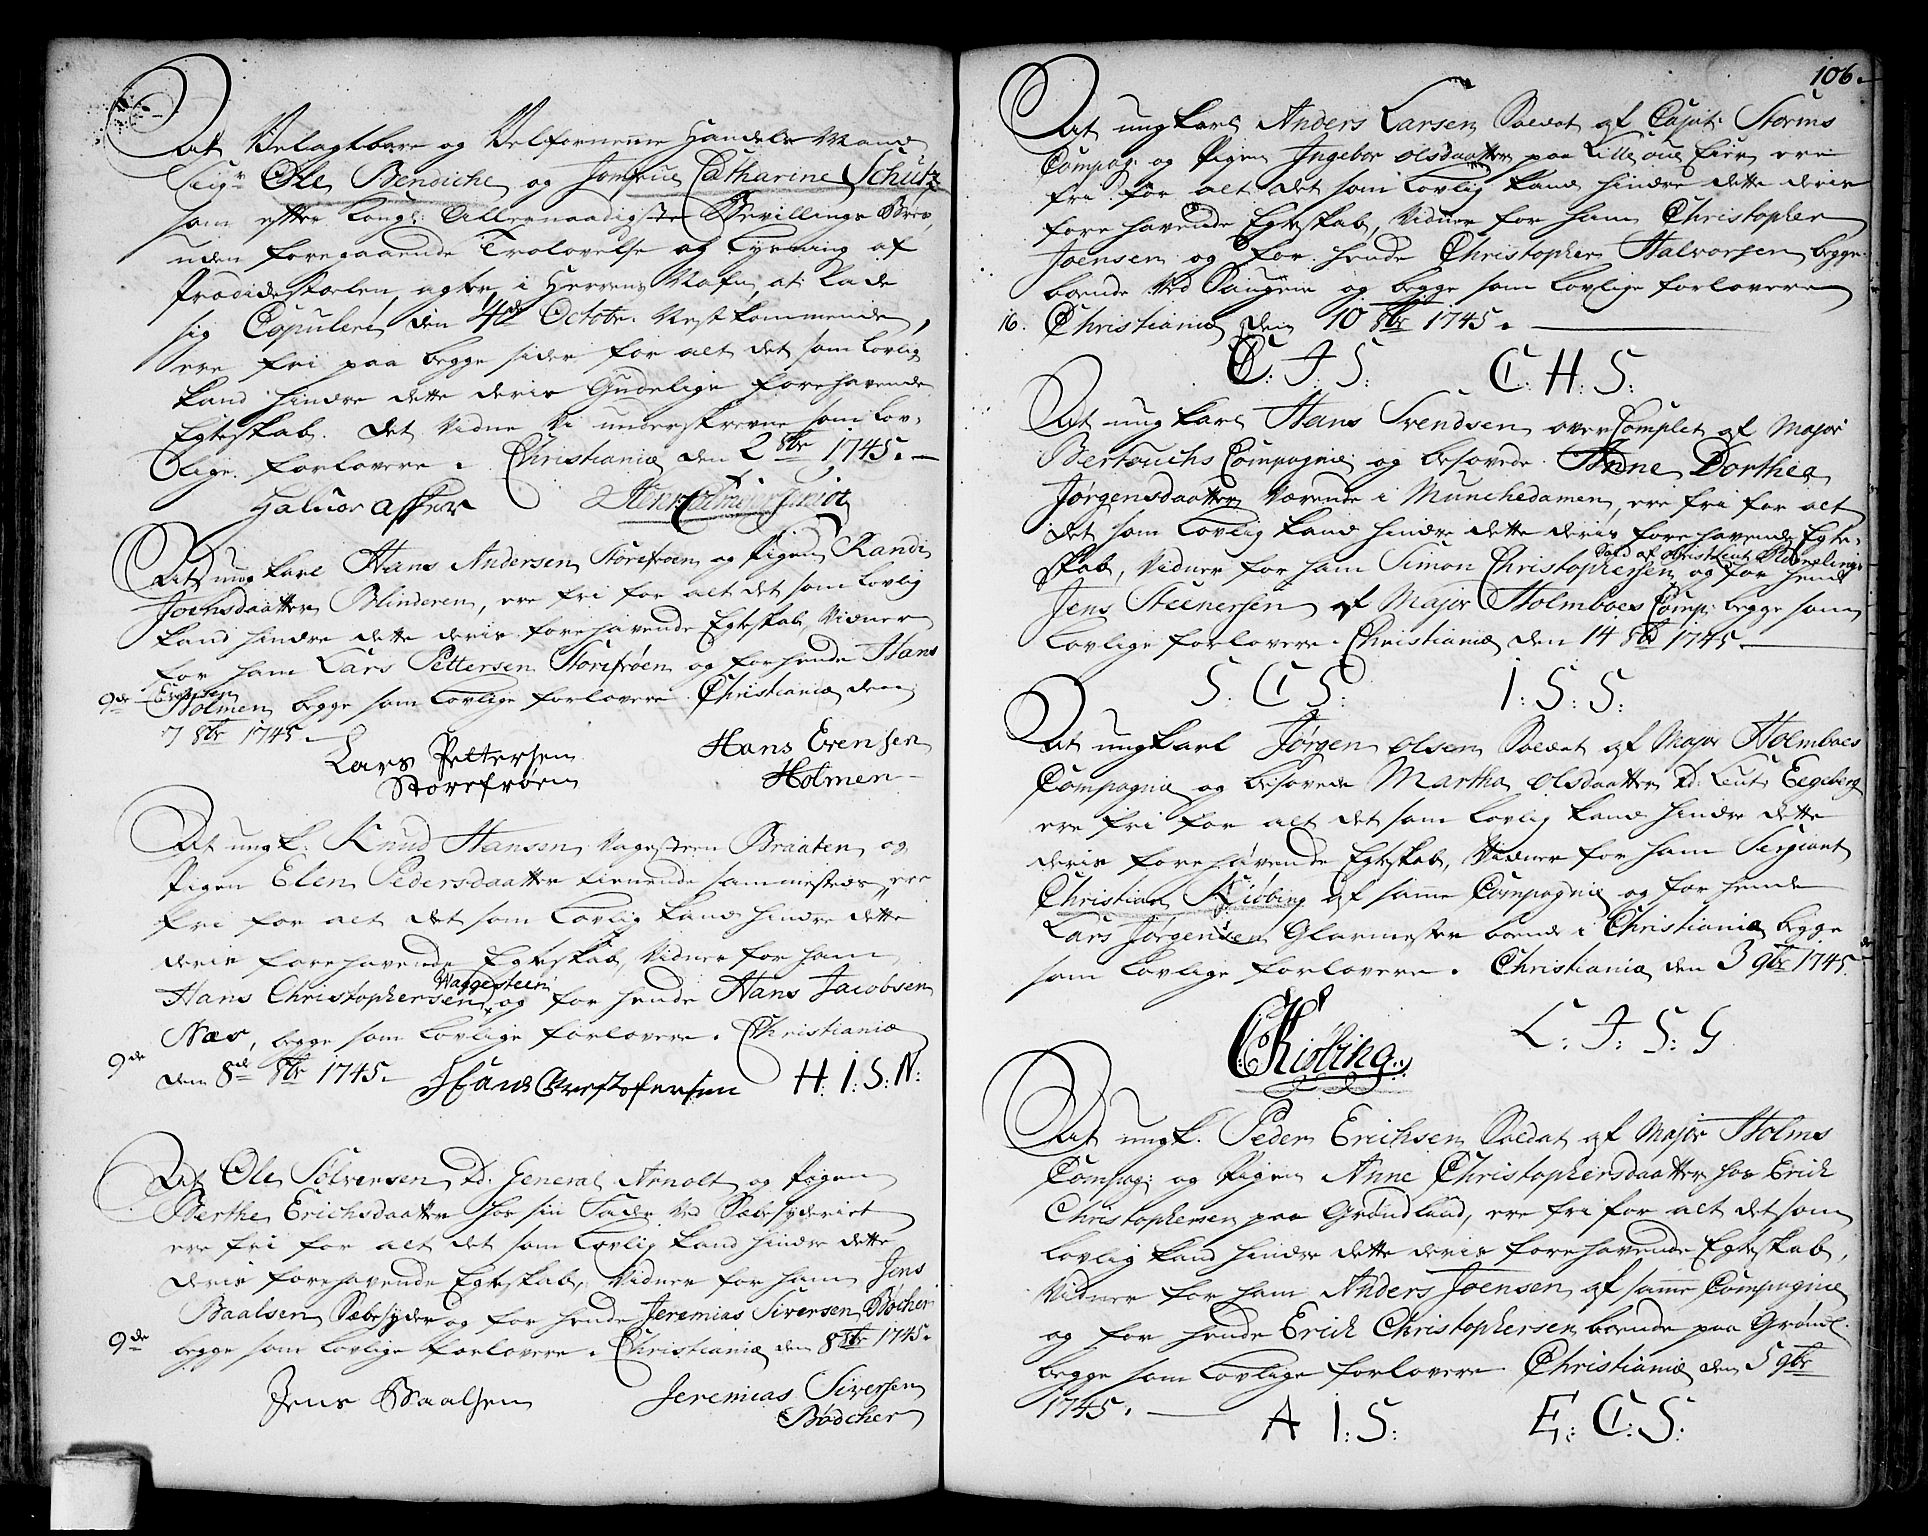 At Velagtbare og Velfornemme Handels Mand
Seigr Ole Bendiche og Jomfrue Catharine Schütz
som efter Kongl: Allernaadigste Bevillings Brev,
uden foregaaende Trolovelse og Lysning af
Prædikestoelen, agter i Herrens Nafn, at lade
sig Copulere den 4de Octobr: Nestkommende,
ere fri paa begge sider for alt det som lovlig
kand hindre dette deris Gudelige forehavende
Egteskab. Det Vidne Vi underskrevne som lov-
lige forlovere. Christiania den 2 8br 1745.
Haluor Asker
At ungkarl Hans Andersen Storefroen og Pigen Randi
Joensdaatter Blinderen, ere fri for alt det som lovlig
kand hindre dette deris forehavende Egteskab, Vidner
for ham Lars Pettersen Storefrøen og for hende Hans
Evensen
9de Holmen begge som lovlige forlovere. Christiania den
7 8br 1745.
Lars Pettersen Hans Evensen
Storefrøen Holmen
At ungk. Knud Hansen Vagesteen Braaten og
Pigen Elen Pedersdaatter tienende sammesteds, ere
fri for alt det som lovlig kand hindre dette
deris forehavende Egteskab, Vidner for ham
Waggesteen
Hans Christophersen og for hende Hans Jacobsen
Næs, begge som lovlige forlovere. Christiania
9de den 8de 8br 1745. Hans Chrestofersen H. I: S: N:
At Ole Sølvensen Kd. General Arnolt og Pigen
Berthe Erichsdaatter hos sin Fader Ved Sæbesyderiet
ere fri for alt det som lovlig kand hindre dette
deris forehavende Egteskab, Vidner for ham Jens
Baalsen Sæbesyder og for hende Jeremias Siversen Bødcher
9de begge som lovlige forlovere. Christiania den 8de 8br 1745.
Jens Baalsen Jeremias Siversen
Bødcher
106.
At ungkarl Anders Larsen Soldat af Capit: Storms
Compag: og Pigen Ingebor Olsdaatter paa Lille Eier ere
fri for alt det som lovlig kand hindre dette deris
forehavende Egteskab, Vidner for ham Christopher
Joensen og for hende Christopher Halvorsen begge
boende Ved Saugene og begge som lovlige forlovere
16. Christiania den 10 8br 1745.
C: I: S: C: H: S:
At ungkarl Hans Svendsen overComplet af Major
Bertouchs Compagnie og besovede Anne Dorthea
Jørgensdaatter Værende i Munchedamen, ere fri for alt
det som lovlig kand hindre dette deris forehavende Egte-
skab, Vidner for ham Simon Christophersen og for hende
Jens Steenersen af Major Holmboes Comp: begge som
lovlige forlovere. Christiania den 14 8br 1745.
S: C: S: I: S: S:
At ungkarl Jørgen Olsen Soldat af Major Holmboes
Compagnie og besovede Martha Olsdaatter Kd. Leut: Eegeberg
ere fri for alt det som lovlig kand hindre dette
deris forehavende Egteskab, Vidner for ham Sergiant
Christian Kiöbing af samme Compagnie og for hende
Lars Jørgensen Glarmester boende i Christiania begge
som lovlige forlovere. Christiania den 3 9br 1745.
CKiöbing L: I: S: G
At ungk. Peder Erichsen Soldat af Major Holms
Compag: og Pigen Anne Christophersdaatter hos Erich
Christophersen paa Grønland, ere fri for alt det som
lovlig kand hindre dette deris forehavende Egteskab,
Vidner for ham Anders Joensen af samme Compagnie
og for hende Erich Christophersen boende paa Grønl:
begge som lovlige forlovere. Christiania den 5 9br
1745. A I: S: E: C: S: